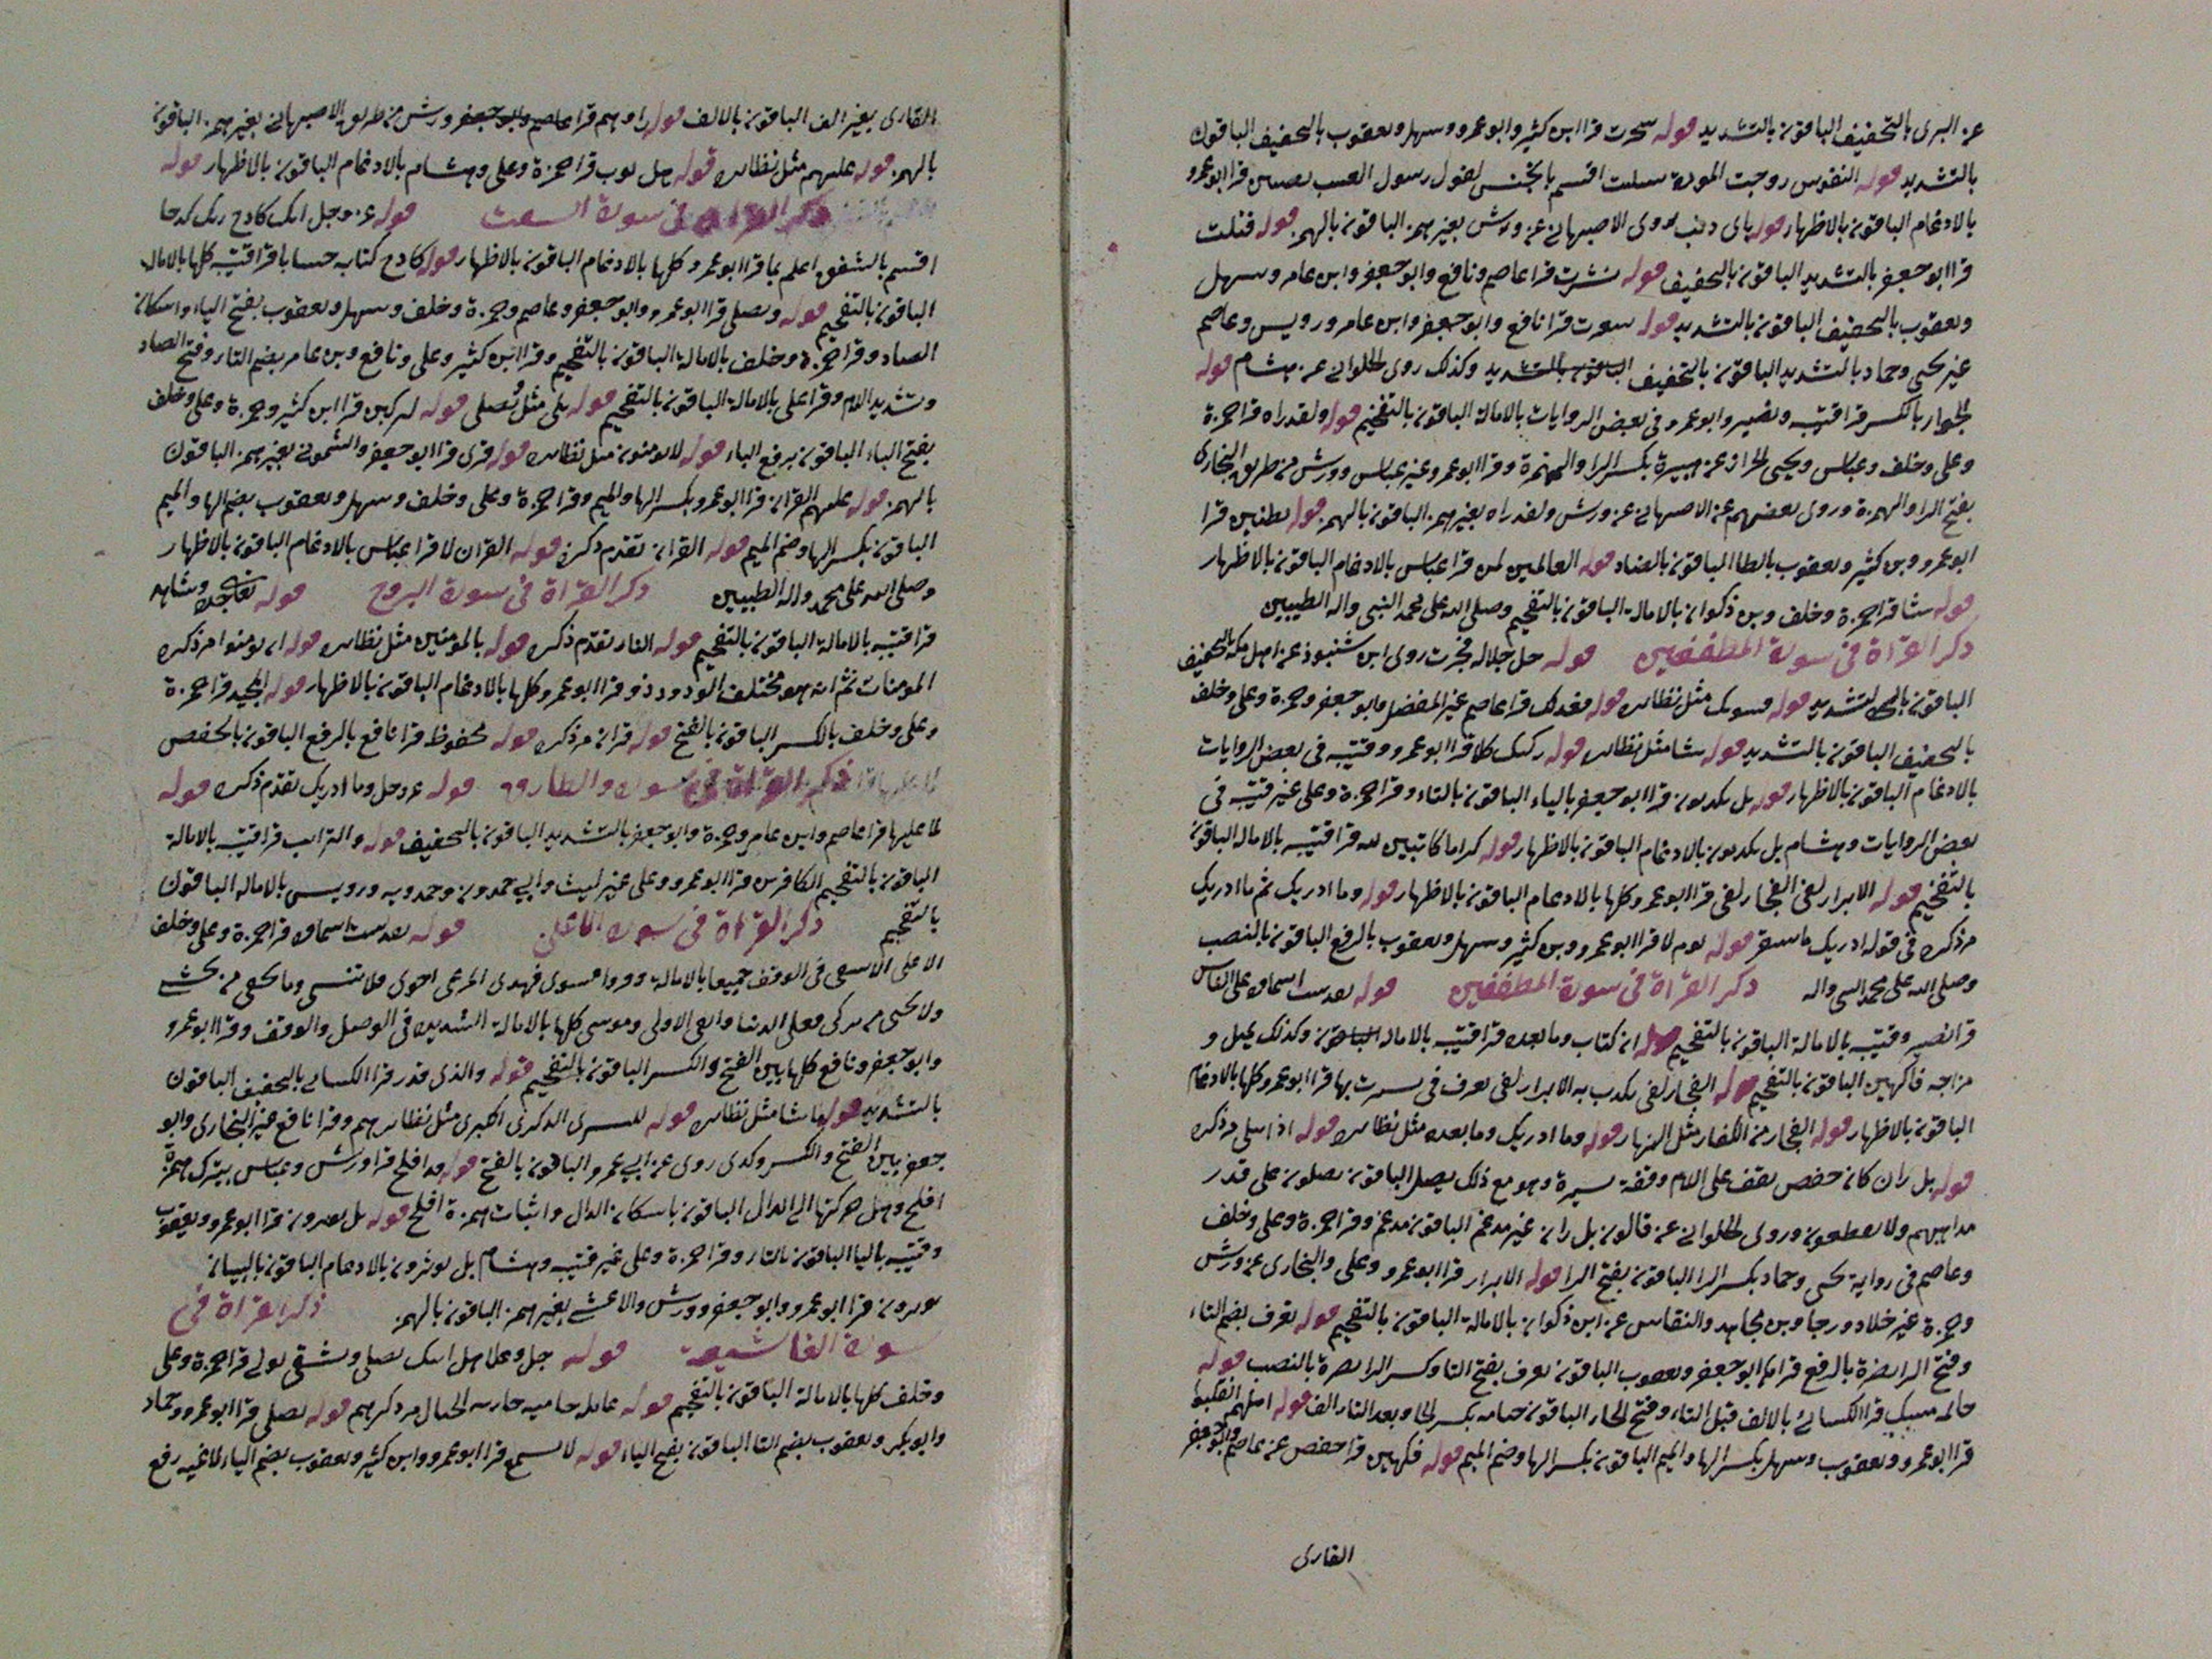 عن البزى بالتخفيف الباقون بالتشديد قوله سجرت قرا ابن كثير وابوعمرو وسهل ويعقوب بالتخفيف الباقون
بالتشديد قوله النفوس زوجت الموءدة سئلت اقسم بالخنس لقول رسول الغيب بضنين قرا ابوعمرو
بالادغام الباقون بالاظهار قوله باى ذنب روى الاصبهانى عن ورش بغير همز الباقون بالهمز قوله قتلت
قرا ابوجعفر بالتشديد الباقون بالتخفيف قوله نشرت قرا عاصم ونافع وابوجعفر وابن عامر وسهل
ويعقوب بالتخفيف الباقون بالتشديد قوله سعرت قرا نافع وابوجعفر وابن عامر ورويس وعاصم
غير يحيى وحماد بالتشديد الباقون بالتخفيف وكذلك روى الحلوانى عن هشام قوله
الجوار بالكسر قرا قتيبه ونصير وابوعمرو فى بعض الروايات بالامالة الباقون بالتفخيم قوله ولقد راه قرا حمزة
وعلى وخلف وعباس ويحيى الخراز عن هبيرة بكسر الرا والهمزة وقرا ابوعمرو غير عباس وورش من طريق البخارى
بفتح الرا والهمزة وروى بعضهم عن الاصبهانى عن ورش ولقد راه بغير همز الباقون بالهمز قوله بظنين قرا
ابوعمرو وبن كثير ويعقوب بالظا الباقون بالضاد قوله العالمين لمن قرا عباس بالادغام الباقون بالاظهار
قوله شا قرا حمزة وخلف وبن ذكوان بالامالة الباقون بالتفخيم وصلى الله على محمد النبى واله الطيبين
ذكر القراة فى سورة المطففين قوله جل جلاله فجرت روى ابن شنبوذ عن اهل مكة بالتخفيف
الباقون بالتشديد قوله فسويك مثل نظائره قوله فعدلك قرا عاصم غير المفضل وابوجعفر وحمزة وعلى وخلف
بالتخفيف الباقون بالتشديد قوله شا مثل نظائره قوله ركبك كلا قرا ابوعمرو وقتيبه فى بعض الروايات
بالادغام الباقون بالاظهار قوله بل يكذبون قرا ابوجعفر بالياء الباقون بالتاء وقرا حمزة وعلى غير قتيبه فى
بعض الروايات وهشام بل يكذبون بالادغام الباقون بالاظهار قوله كراما كاتبين قرا قتيبه بالامالة الباقون
بالتفخيم قوله الابرار لفى الفجار لفى قرا ابوعمرو كلها بالادغام الباقون بالاظهار قوله وما ادريك ثم ما ادريك
مر ذكره فى قوله ادريك ما سقر قوله يوم لا قرا ابوعمرو وبن كثير وسهل ويعقوب بالرفع الباقون بالنصب
وصلى الله على محمد النبى واله ذكر القراة فى سورة المطففين قوله على الناس
قرا نصير وقتيبه بالامالة الباقون بالتفخيم قوله ان كتاب وما بعده قرا قتيبه بالامالة وكذلك
مزاجه فاكهين الباقون بالتفخيم قوله الفجار لفى يكذب به الابرار لفى تعرف فى يشرب بها قرا ابوعمرو كلها بالادغام
الباقون بالاظهار قوله الفجار من الكفار مثل النهار قوله وما ادريك وما بعده مثل نظائره قوله اذا تتلى مر ذكره
قوله بل ران كان حفص يقف على اللام وقفة يسيرة وهو مع ذلك يصل الباقون يصلون على قدر
مذاهبهم ولا يقطعون وروى الحلوانى عن قالون بل ران غير مدغم الباقون مدغم وقرا حمزة وعلى وخلف
وعاصم فى رواية يحيى وحماد بكسر الرا الباقون بفتح الرا قوله الابرار قرا ابوعمرو وعلى والبخارى عن ورش
وحمزة غير خلاد ورجا وبن مجاهد والنقاش عن ابن ذكوان بالامالة الباقون بالتفخيم قوله تعرف بضم التاء
وفتح الرا نضرة بالرفع قراهما ابوجعفر ويعقوب الباقون تعرف بفتح التا وكسر الرا نضرة بالنصب قوله
خاتمه مسك قرا الكسائى بالالف قبل التاء وفتح الخاء الباقون ختامه بكسر الخا وبعد التاء الف قوله اهلهم انقلبوا
قرا ابوعمرو ويعقوب وسهل بكسر الها والميم الباقون بكسر الها وضم الميم قوله فكهين قرا حفص عن عاصم وابوجعفر
القارى
القارى بغير الف الباقون بالالف قوله راوهم قرا عاصم وابوجعفر وورش من طريق الاصبهانى بغير همز الباقون
بالهمز قوله عليهم مثل نظائره قوله هل ثوب قرا حمزة وعلى وهشام بالادغام الباقون بالاظهار قوله
ذكر القراة فى سورة انشقت قوله عز وجل انك كادح ربك كدحا
اقسم بالشفق اعلم بما قرا ابوعمرو كلها بالادغام الباقون بالاظهار قوله كادح كتابه حسابا قرا قتيبه كلها بالامالة
الباقون بالتفخيم قوله ويصلى قرا ابوعمرو وابوجعفر وعاصم وحمزة وخلف وسهل ويعقوب بفتح الياء واسكان
الصاد وقرا حمزة وخلف بالامالة الباقون بالتفخيم وقرا ابن كثير وعلى ونافع وبن عامر بضم التاء وفتح الصاد
وتشديد اللام وقرا على بالامالة الباقون بالتفخيم قوله بلى مثل يصلى قوله لتركبن قرا ابن كثير وحمزة وعلى وخلف
بفتح الباء الباقون برفع الباء قوله لا يومنون مثل نظائره قوله قرى قرا ابوجعفر والشمونى بغير همز الباقون
بالهمز قوله عليهم القران قرا ابوعمرو بكسر الها والميم وقرا حمزة وعلى وخلف وسهل ويعقوب بضم الها والميم
الباقون بكسر الها وضم الميم قوله القران تقدم ذكره قوله القران لا قرا عباس بالادغام الباقون بالاظهار
وصلى الله على محمد واله الطيبين ذكر القراة فى سورة البروج قوله وشاهد
قرا قتيبه بالامالة الباقون بالتفخيم قوله النار تقدم ذكره قوله بالمومنين مثل نظائره قوله ان يومنوا مر ذكره
المومنات ثم انه هو مختلف الودود ذو قرا ابوعمرو كلها بالادغام الباقون بالاظهار قوله المجيد قرا حمزة
وعلى وخلف بالكسر الباقون بالفتح قوله قران مر ذكره قوله محفوظ قرا نافع بالرفع الباقون بالخفض
ذكر القراة فى سورة والطارق قوله عز وجل وما ادريك تقدم ذكره قوله
لما عليها قرا عاصم وابن عامر وحمزة وابوجعفر بالتشديد الباقون بالتخفيف قوله والترائب قرا قتيبه بالامالة
الباقون بالتفخيم الكافرين قرا ابوعمرو وعلى غير ليث وابى حمدون وحمدويه ورويس بالامالة الباقون
بالتفخيم ذكر القراة فى سورة الاعلى قوله قرا حمزة وعلى وخلف
الاعلى الاشقى فى الوقف جميعا بالامالة فسوى فهدى المرعى احوى فلا تنسى وما يخفى من يخشى
ولا يحيى من تزكى فصلى الدنيا وابقى الاولى وموسى كلها بالامالة الشديدة فى الوصل والوقف وقرا ابوعمرو
وابوجعفر ونافع كلها بين الفتح والكسر الباقون بالتفخيم قوله والذى قدر قرا الكسائى بالتخفيف الباقون
بالتشديد قوله ما شا مثل نظائره قوله لليسرى الذكرى الكبرى مثل نظائرهم وقرا نافع غير البخارى وابو
جعفر بين الفتح والكسر وكذى روى عن ابى عمرو الباقون بالفتح قوله قد افلح قرا ورش وعباس بترك همزة
افلح ونقل حركتها الى الدال الباقون باسكان الدال واثبات همزة افلح قوله بل يوثرون قرا ابوعمرو ويعقوب
وقتيبه باليا الباقون بالتاء وقرا حمزة وعلى غير قتيبه وهشام بل توثرون بالادغام الباقون بالبيان
يوثرون قرا ابوعمرو وابوجعفر وورش والاعشى بغير همز الباقون بالهمز ذكر القراة فى
سورة الغاشية قوله جل وعلا هل اتيك تصلى وتسقى تولى قرا حمزة وعلى
وخلف كلها بالامالة الباقون بالتفخيم قوله عاملة حامية جارية الجبال مر ذكرهم قوله تصلى قرا ابوعمرو وحماد
وابوبكر ويعقوب بضم التا الباقون بفتح الياء قوله لا تسمع قرا ابوعمرو وابن كثير ويعقوب بضم الياء لاغيه رفع